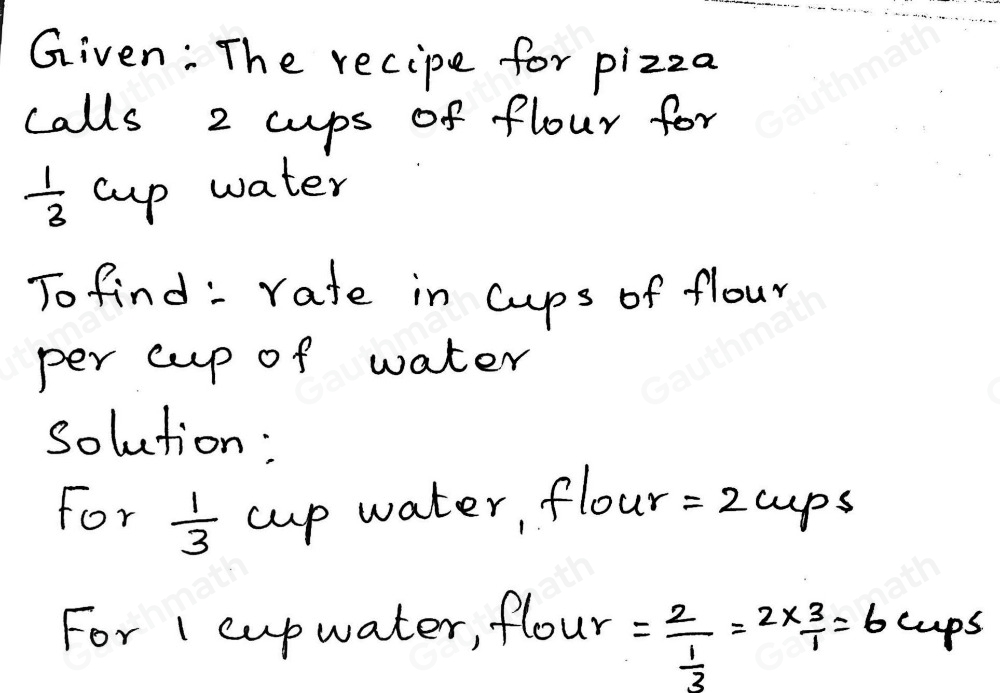 Given: The recipe for pizza
calls 2 cups of flour for
1/3 cup water
To find:- rate in cups of flour
per cup of water
Solution:
For 1/3 cup water, flour = 2 cups
For 1 cup water, flour = 2/(1/3) = 2×3/1 = 6 cups
Gauthmath